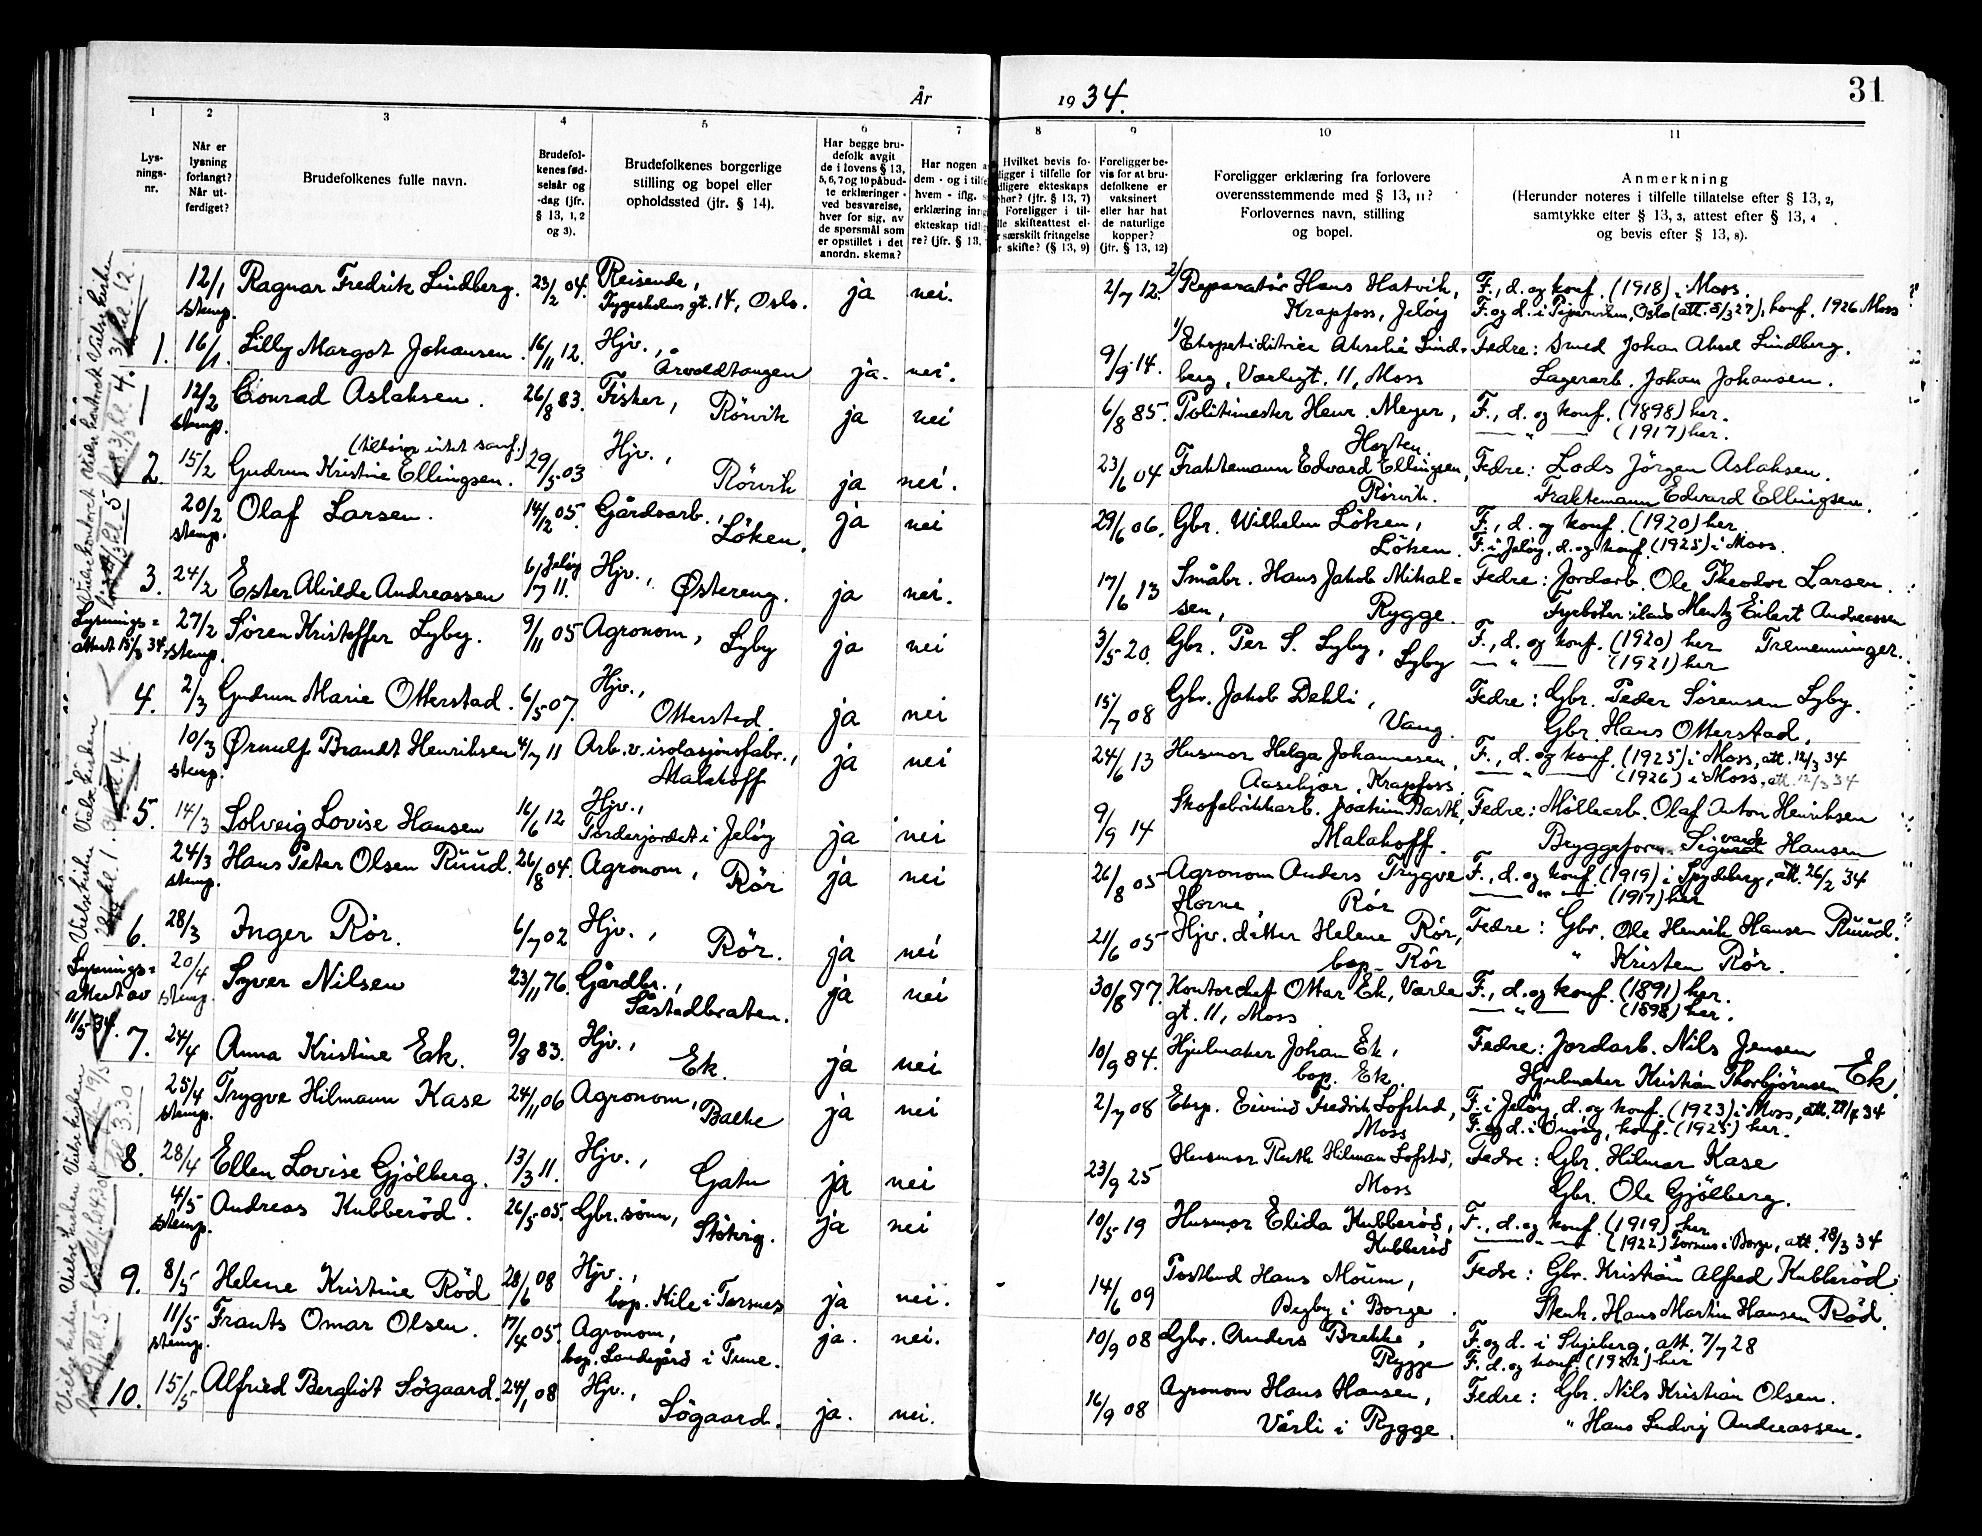 År 1934.
31
1 2 3 4 5 6 7 8 9 10 11
Lys-
nings-
nr.
Når er
lysning
forlangt?
Når ut-
ferdiget?
Brudefolkenes fulle navn.
Brudefol-
kenes fød-
selsår og
-dag (jfr.
§ 13, 1, 2
og 3).
Brudefolkenes borgerlige
stilling og bopel eller
opholdssted (jfr. § 14).
Har begge bru-
defolk avgit
de i lovens § 13,
5, 6, 7 og 10 påbud-
te erklæringer -
ved besvarelse,
hver for sig, av
de spørsmål som
er opstillet i det
anordn. skema?
Har nogen a
dem - og i tilfe
hvem - iflg.
erklæring inng
ekteskap tidl
re? (jfr. § 13,
Hvilket bevis fo-
ligger i tilfelle for
dligere ekteskaps
phør? (jfr. § 13, 7)
Foreligger i til-
lle skifteattest el-
r særskilt fritagelse
r skifte? (§ 13, 9)
Foreligger be-
vis for at bru-
defolkene er
vaksinert
eller har hat
de naturlige
kopper?
(jfr. § 13, 12)
Foreligger erklæring fra forlovere
overensstemmende med § 13, 11?
Forlovernes navn, stilling
og bopel.
Anmerkning
(Herunder noteres i tilfelle tillatelse efter § 13, 2,
samtykke efter § 13, 3, attest efter § 13, 4
og bevis efter § 13, 8).
12/1 Ragnar Fredrik Lindberg. 23/2 04. Reisende, ja nei. 2/7 12. 2/ Reparatør Hans Hatvik, F., d. og konf. (1918) i Moss.
stemp. gt. 14, Oslo. Krapfoss, Jeløy F. og d. i Pipervikn, Oslo (att. 5/3 27), konf. 1926 Moss
1. 16/1 Lilly Margot Johansen. 16/11 12. Hjv., ja. nei. 9/9 14. 1/ Ekspeditrice Akselie Lind- Fedre: Smed Johan Aksel Lindberg.
Årvoldtangen berg, Varligt. 11, Moss Lagerarb. Johan Johansen.
12/2 Conrad Aslaksen. 26/8 83. Fisker, Rörvik ja nei 6/8 85. Politimester Henr. Meyer, F., d. og konf. (1898) her.
stemp. Horten. — " — (1917) her.
(tilhører intet samf.)
2. 15/2 Gudrun Kristine Ellingsen. 29/5 03 Hjv., Rörvik ja nei. 23/6 04 Fraktemann Edvard Ellingsen, Fedre: Lods Jörgen Aslaksen.
Rörvik. Fraktemann Edvard Ellingsen.
20/2 Olaf Larsen. 14/2 05. Gårdsarb., Löken. ja nei 29/6 06. Gbr. Wilhelm Löken, F., d. og konf. (1920) her.
stemp. Löken. F. i Jeløy, d. og konf. (1925) i Moss.
3. 24/2 Ester Alvilde Andreassen 6/7 11. Jeløy Hjv., Østereng. ja nei. 17/6 13 Småbr. Hans Jakob Mikal- Fedre: Jordarb. Ole Theodor Larsen.
sen, Rygge. Fyrbøter Mentz Eilert Andreassen
Lysnings-
attest 15/3 34.
27/2 Søren Kristoffer Lyby. 9/11 05 Agronom, Lyby ja nei 3/5 20. Gbr. Per S. Lyby, Lyby F., d. og konf. (1920) her Tremenninger.
stemp. — " — (1921) her
4. 2/3 Gudrun Marie Otterstad. 6/5 07. Hjv., Otterstad. ja nei 15/7 08 Gbr. Jakob Dehli, Fedre: Gbr. Peder Sørensen Lyby.
Vang. Gbr. Hans Otterstad.
10/3 Ørnulf Brandt Henriksen 4/7 11 Arb. v. isolasjonsfabr., ja nei 24/6 13 Husmor Helga Johannesen, F., d. og konf. (1925) i Moss, att. 12/3 34
stemp. Malakoff Krapfoss. — " — (1926) i Moss. att. 12/3 34
5. 14/3 Solveig Lovise Hansen 16/6 12 Hjv., ja nei 9/9 14 Skofabrikkarb. Joakim Barth, Fedre: Möllearb. Olaf Anton Henriksen
Torderjordet i Jeløy Malakoff. Bryggeform. Sigvard Hansen
24/3 Hans Peter Olsen Ruud. 26/8 04. Agronom, Rör ja nei 26/8 05 Agronom Anders Trygve F., d. og konf. (1919) i Spydeberg, att. 26/2 34
stemp. Horne, Rör — " — (1917) her
6. 28/3 Inger Rör. 6/7 02 Hjv., Rör. ja nei 21/6 05 Hjv. datter Helene Rör, Fedre: Gbr. Ole Henrik Hansen Ruud.
bop. Rör " Kristen Rör.
Lysnings-
attest av
11/5 34.
20/4 Syver Nilsen 23/11 76. Gårdbr., ja nei 30/8 77. Kontorchef Ottar Ek, Varle F., d. og konf. (1891) her.
stemp. Såstadbraten. gt. 11, Moss — " — (1898) her.
7. 24/4 Anna Kristine Ek. 9/8 83. Hjv., Ek. ja nei 10/9 84. Hjulmaker Johan Ek, Fedre: Jordarb. Nils Jensen
bop. Ek. Hjulmaker Kristian Thorbjörnsen Ek.
25/4 Trygve Hilmann Kase 24/11 06 Agronom, Balke ja nei 2/7 08 Eksp. Eivind Fredrik Lofsted, F. i Jeløy, d. og konf. (1923) i Moss, att. 27/4 34
stemp. Moss F. og d. i Onsöy, konf. (1925) her.
8. 28/4 Ellen Lovise Gjölberg. 13/3 11. Hjv., Gatu ja nei 23/9 25 Husmor Ruth Hilman Lofsted, Fedre: Gbr. Hilmar Kase
Moss Gbr. Ole Gjölberg.
4/5 Andreas Kubberöd. 26/5 05. Gbr. sönn, Stötvig. ja nei 10/5 19 Husmor Elida Kubberöd, F., d. og konf. (1919) her
stemp. Kubberöd — " — (1922) Torsnes i Borge, att. 28/3 34
9. 8/5 Helene Kristine Röd 28/6 08 Hjv., ja nei. 14/6 09 Postbud Hans Moum, Fedre: Gbr. Kristian Alfred Kubberöd.
bop. Kile i Torsnes Begby i Borge. Stenh. Hans Martin Hansen Röd.
11/5 Frants Omar Olsen. 17/4 05. Agronom, ja. nei. 10/9 08 Gbr. Anders Brekke, F. og d. i Skjeberg, att. 7/7 28
stemp. bop. Landegård i Tune. Rygge F. d. og konf. (1922) her
10. 15/5 Alfried Bergliot Sögaard. 24/1 08 Hjv., Sögaard. ja. nei. 16/9 08 Agronom Hans Hansen, Fedre: Gbr. Nils Kristian Olsen.
Vårli i Rygge. " Hans Ludvig Andreassen.